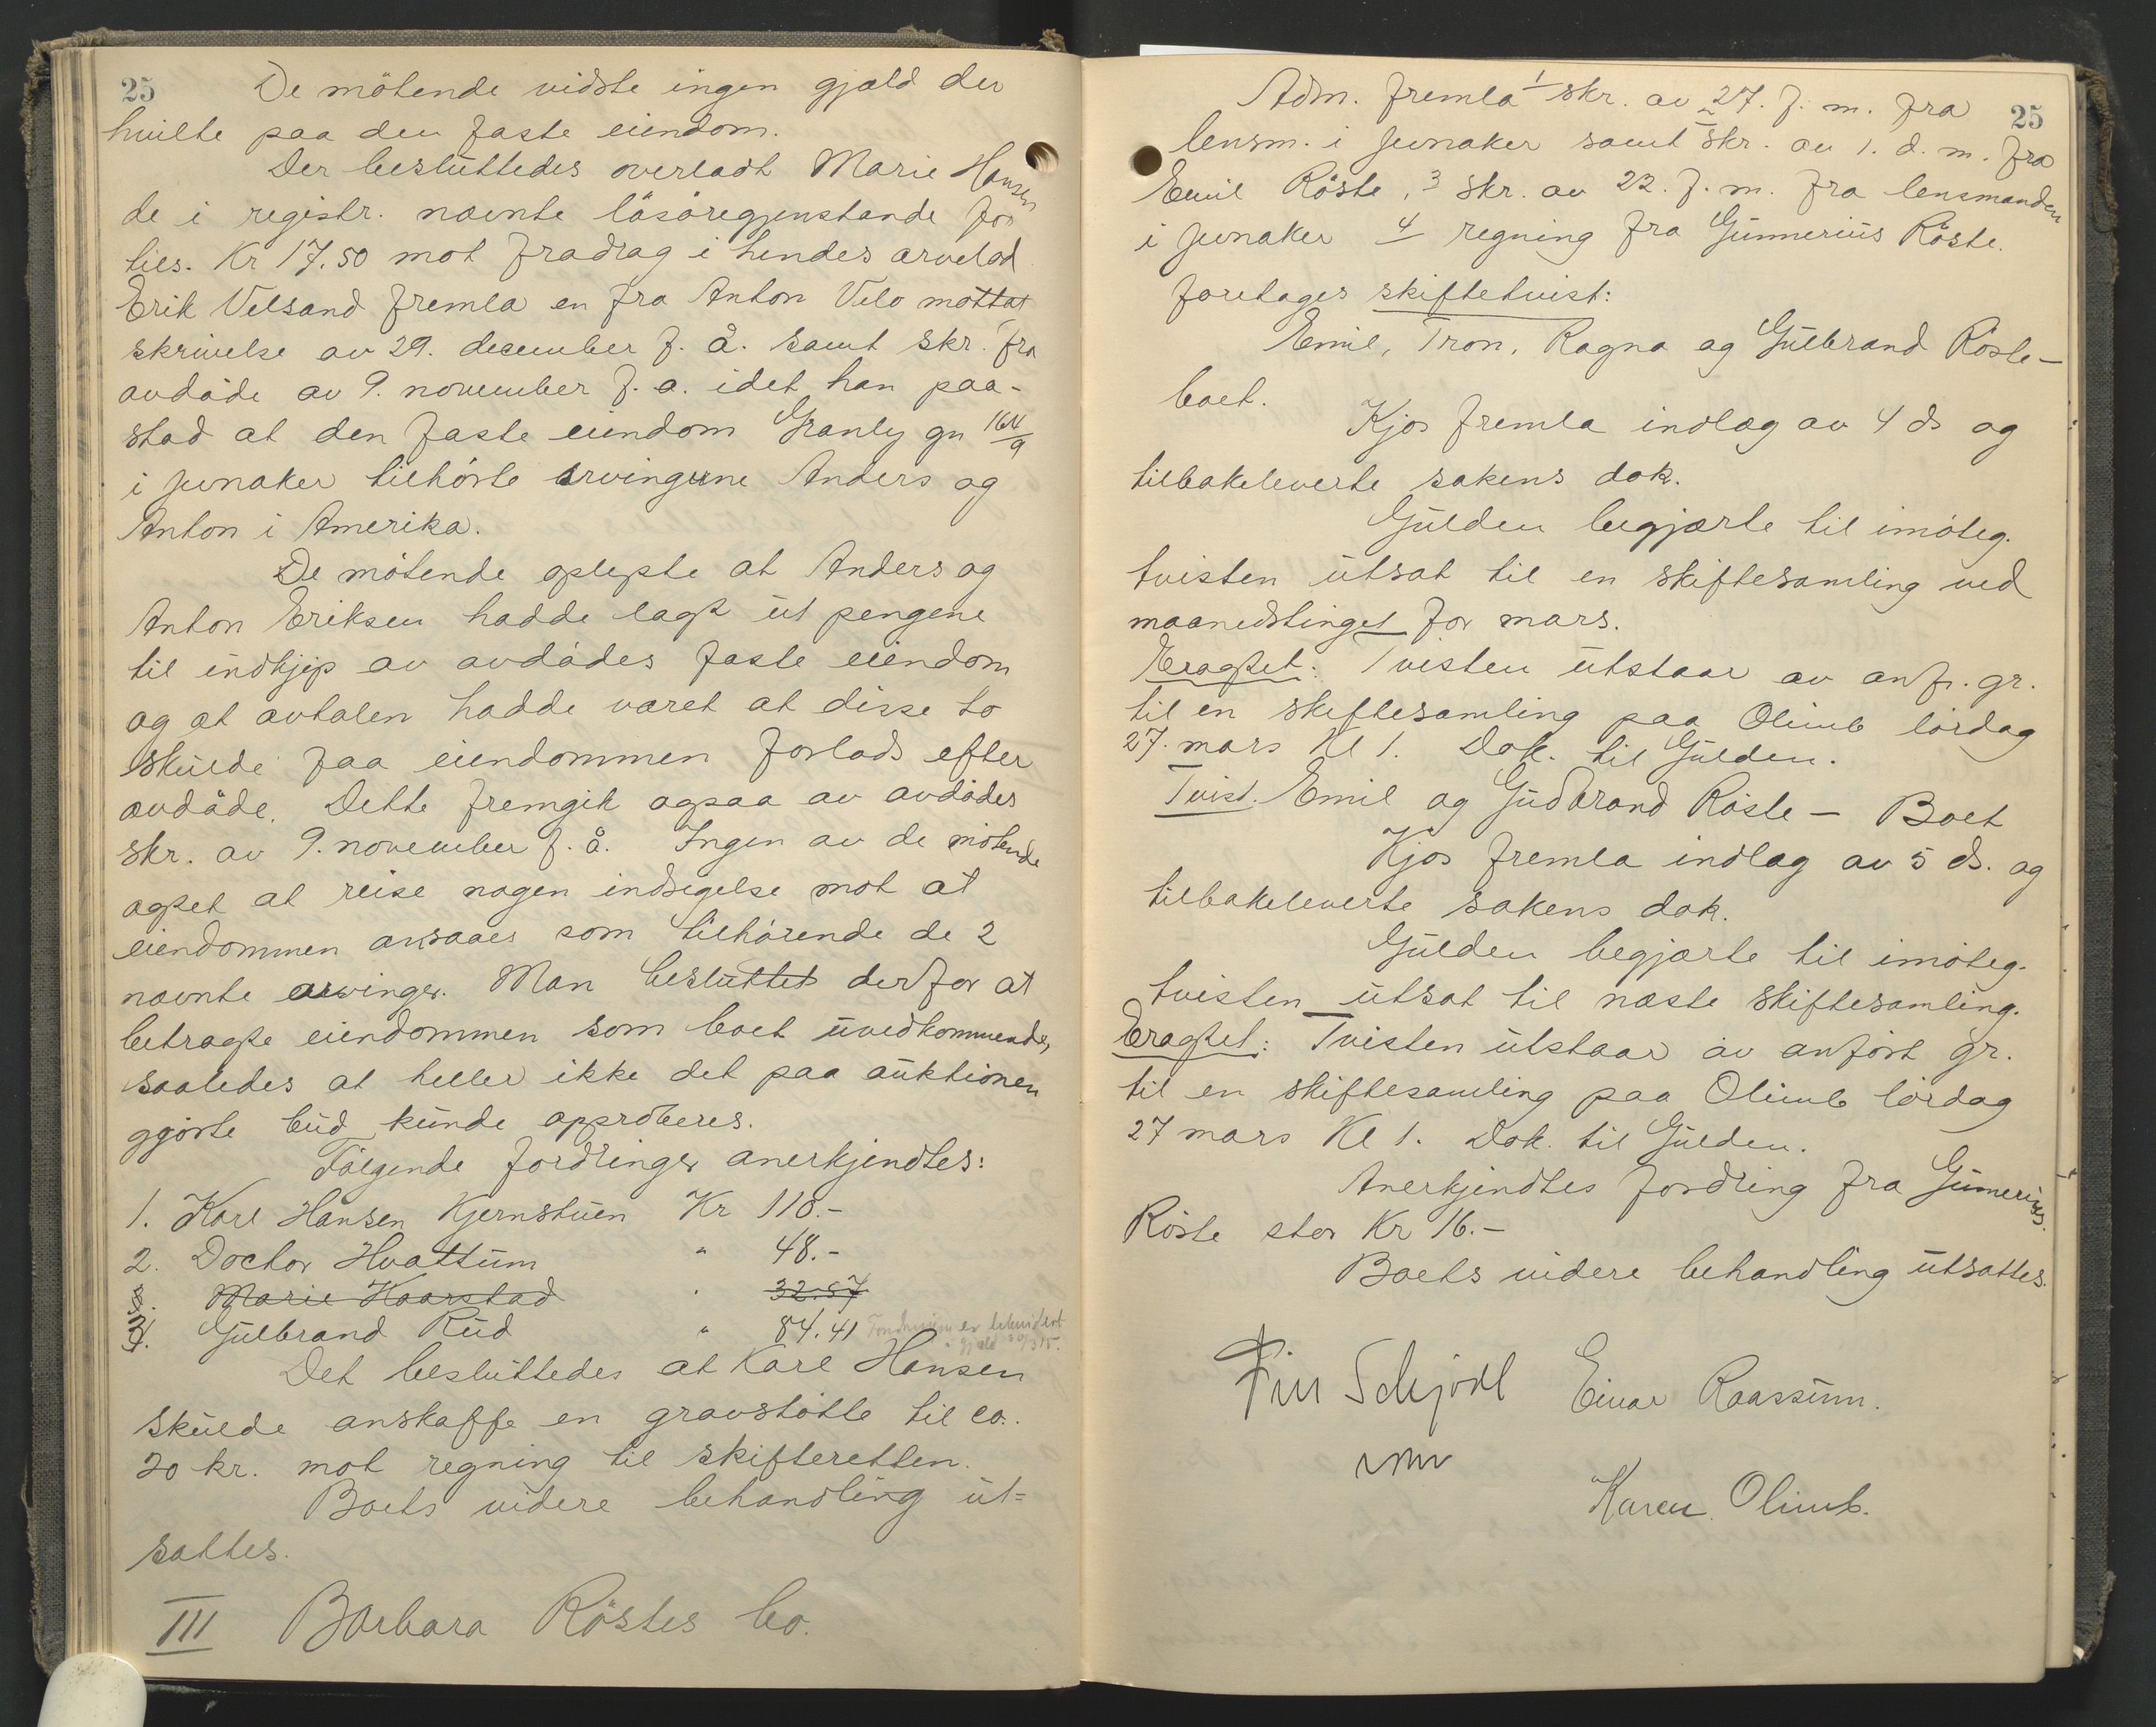 25
De mötende vidste ingen gjæld der
hvilte paa den faste eiendom.
Der besluttedes overladt Marie Hansen
de i registr. nævnte lösöregjenstande for
tils. Kr 17.50 mot fradrag i hendes arvelod
Erik Velsand fremla en fra Anton Velo mottat
skrivelse av 29. december f. å. samt skr. fra
avdöde av 9. november f. a. idet han paa-
stod at den faste eiendom Granly gn 164/9
i Jevnaker tilhörte arvingerne Anders og
Anton i Amerika.
De mötende oplyste at Anders og
Anton Eriksen hadde lagt ut pengene
til indkjöp av avdödes faste eiendom
og at avtalen hadde været at disse to
skulde faa eiendommen forlods efter
avdöde. Dette fremgik ogsaa av avdödes
skr. av 9. november f. å. Ingen av de mötende
agtet at reise nogen indsigelse mot at
eiendommen ansaaes som tilhörende de 2
nævnte arvinger. Man besluttet derfor at
betragte eiendommen som boet uvedkommende,
saaledes at heller ikke det paa auktionen
gjorte bud kunde approberes.
Fölgende fordringer anerkjendtes:
1. Karl Hansen Kjernstuen Kr 110.-
2. Doctor Hvattum " 48.-
3. Marie Haarstad " 32.57
4. Gulbrand Rud " 84.41 Fordringen er likvidert
i gjæld
Det besluttedes at Karl Hansen
skulde anskaffe en gravstötte til ca.
20 kr. mot regning til skifteretten.
Boets videre behandling ut=
sattes.
III Barbara Röstes bo.
25
Adm. fremla 1 skr. av 27. f. m. fra
lensm. i Jevnaker samt 2 skr. av 1. d. m. fra
Emil Röste, 3 skr. av 22. f. m. fra lensmanden
i Jevnaker 4 regning fra Gunnerius Röste.
foretages skiftetvist:
Emil, Tron, Ragna og Gulbrand Röste -
boet.
Kjos fremla indlæg av 4 ds og
tilbakeleverte sakens dok.
Gulden begjærte til imöteg.
tvisten utsat til en skiftesamling ved
maanedstinget for mars.
Eragtet: Tvisten utstaar av anf. gr.
til en skiftesamling paa Olimb lördag
27. mars Kl 1. Dok. til Gulden.
Tvist. Emil og Gudbrand Röste - Boet
Kjos fremla indlæg av 5 ds. og
tilbakeleverte sakens dok.
Gulden begjærte til imöteg.
tvisten utsat til næste skiftesamling.
Eragtet: Tvisten utstaar av anfört gr.
til en skiftesamling paa Olimb lördag
27 mars Kl 1. Dok. til Gulden.
Anerkjendtes fordring fra Gunnerius
Röste stor Kr 16.-
Boets videre behandling utsattes.
Fin Schjödl Einar Raassum.
Karen Olimb.